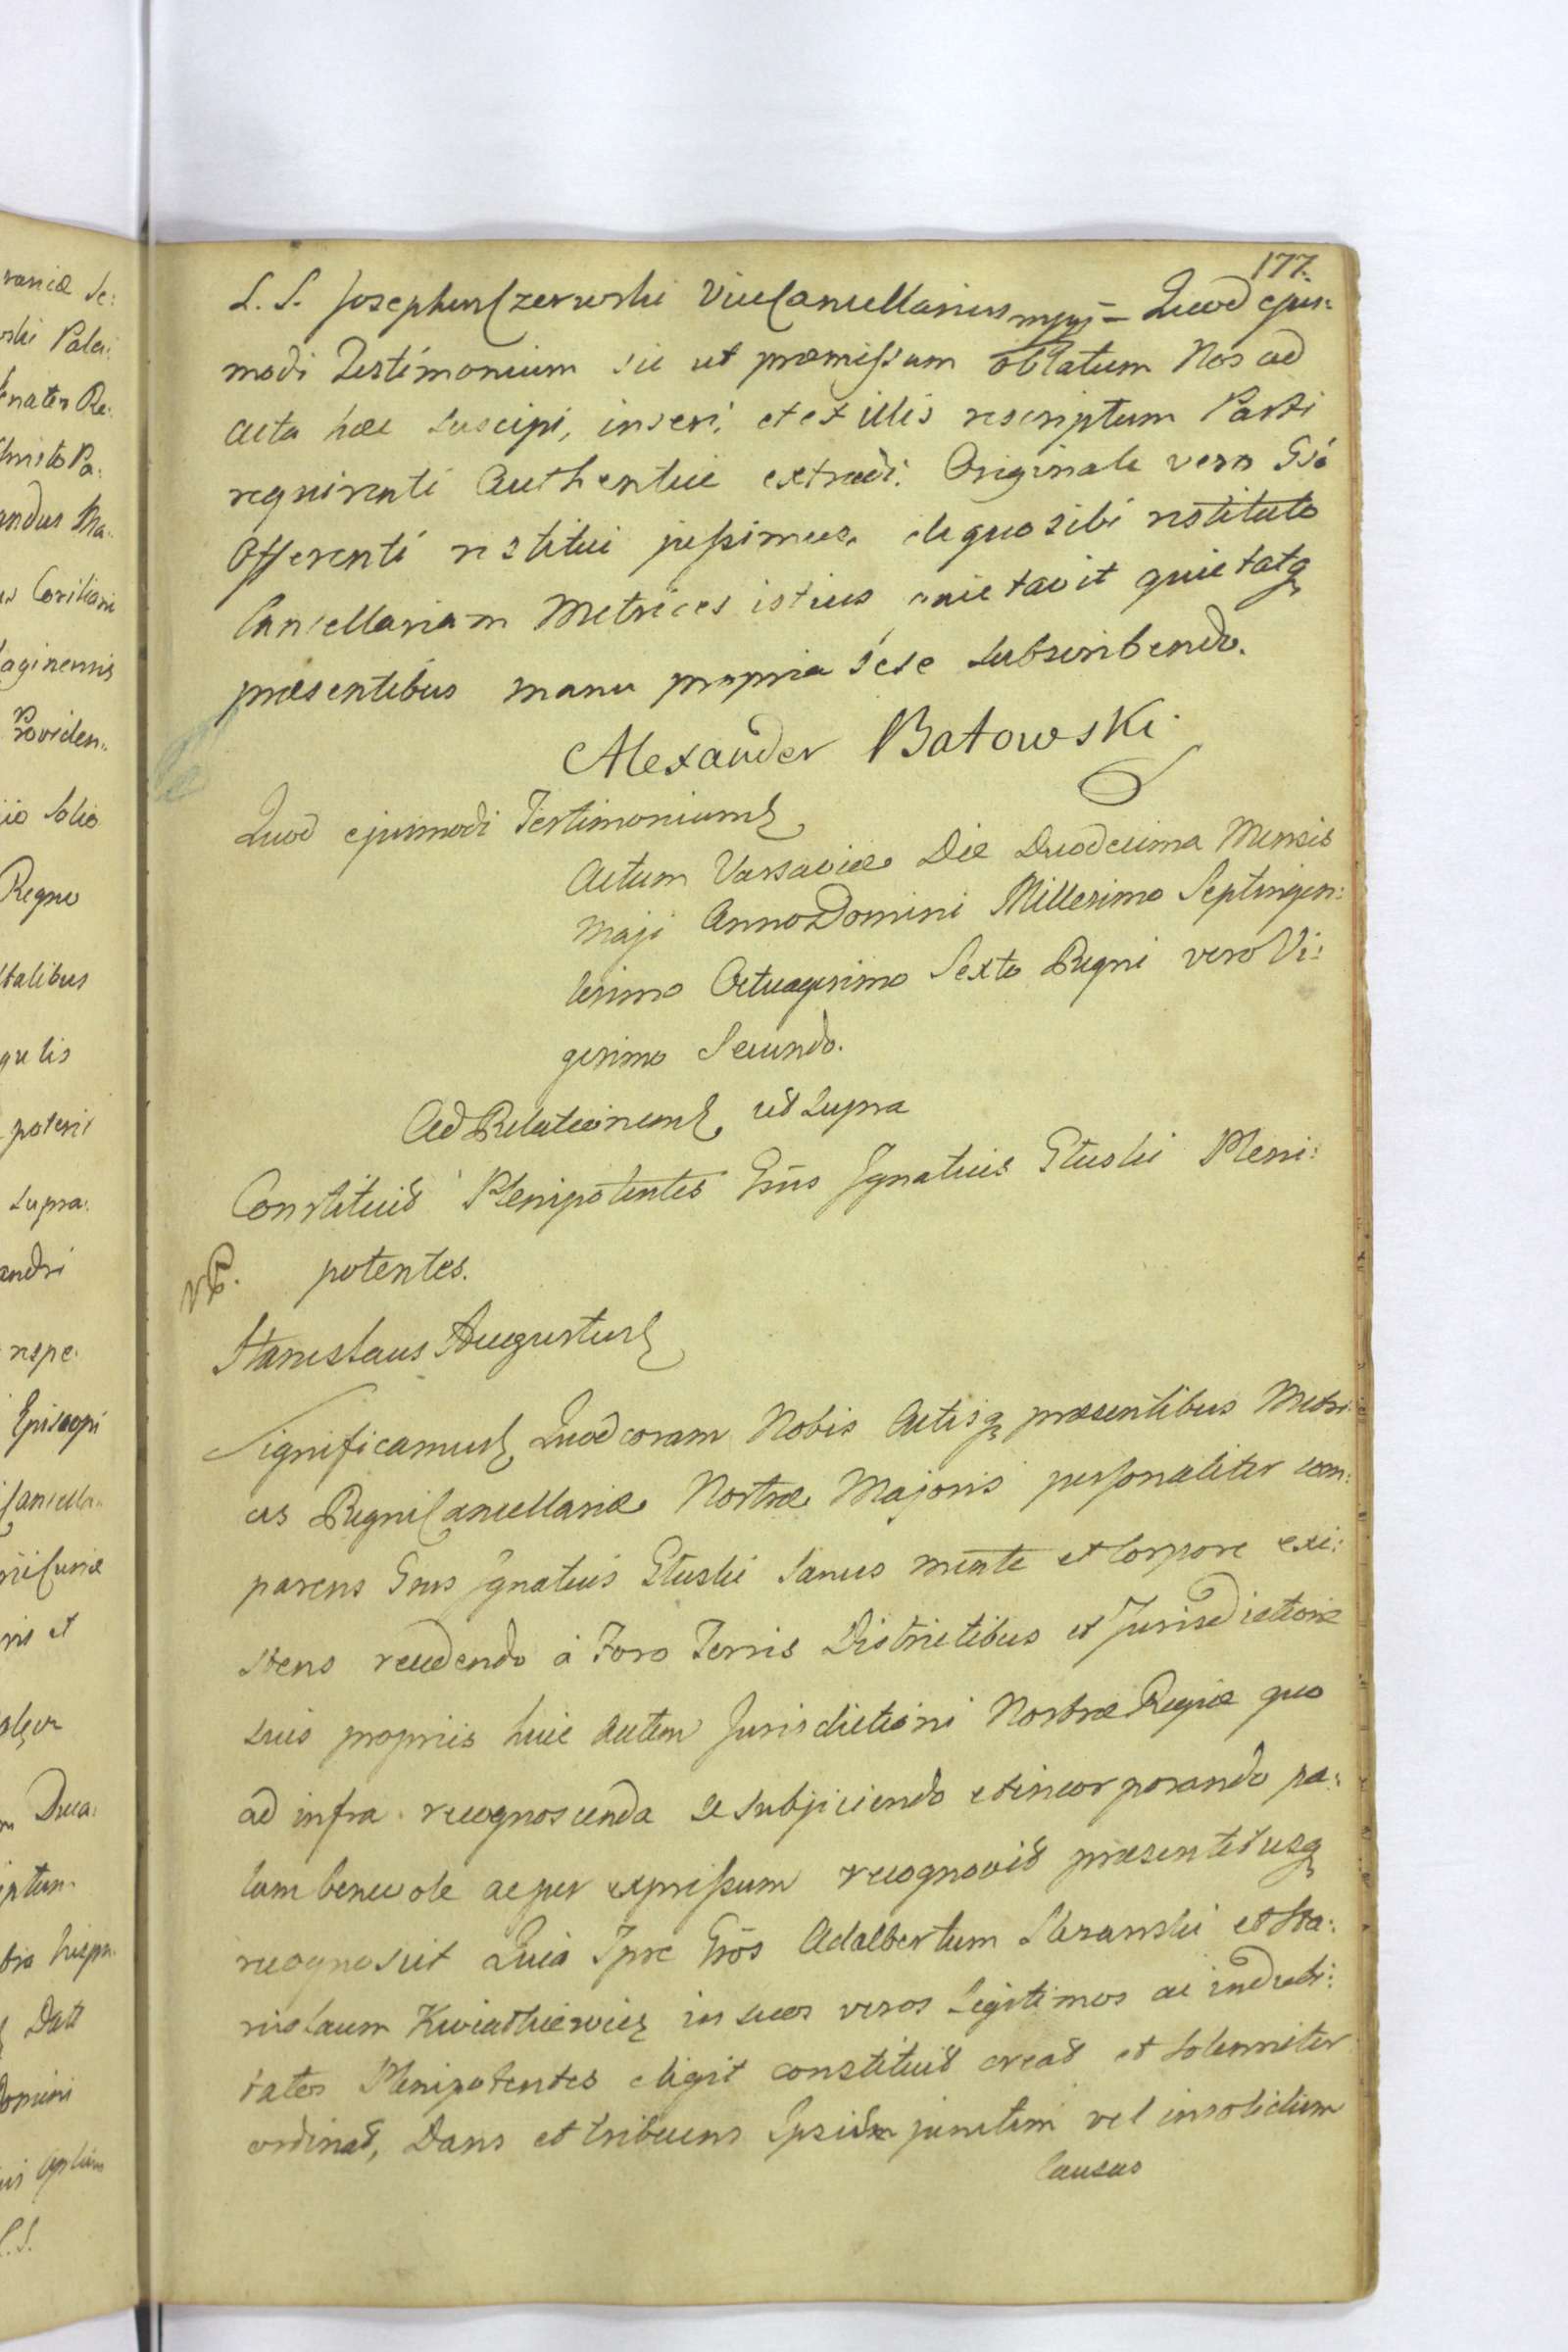 177.
L. S. Josephus Czerwski ViceCancellarius mpp = Quod ejus:
modi Testimonium sic ut præmissum oblatum Nos ad
Acta hæc suscipi, inseri, et ex illis rescriptum Parti
requirenti Authentice extradi. Originale vero Gso
Offerenti restitui jussimus. de quo sibi restituto
Cancellariam Metrices istius quietavit quietatq
præsentibus manu propria sese subscribendo.
Alexander Batowski
Quod ejusmodi Testimonium
Actum Varsaviæ Die Duodecima Mensis
Maji Anno Domini Millesimo Septingen:
tesimo Octuagesimo Sexto Regni vero Vi:
gesimo Secundo.
Ad Relationem ut supra
Constituit Plenipotentes Gsus Ignatius Stuski Pleni:
potentes.
Stanislaus Augustus
Significamus Quod coram Nobis Actisq præsentibus Metri:
ces Regni Cancellariæ Nostræ Majoris personaliter com:
parens Gsus Ignatius Stuski sanus mente et corpore exi:
stens recedendo à Foro Terris Districtibus et Jurisdictione
suis propriis huic autem Jurisdictioni Nostræ Regiæ quo
ad infra recognoscenda se subjiciendo et incorporando pa:
lam benevole ac per expressum recognovit præsentibusq
recognoscit Quia Ipse Gsos Adalbertum Skranski et Sta:
nislaum Kwiatkiewicz in suos veros legitimos ac indubi:
tatos Plenipotentes eligit constituit creat et solenniter
ordinat, Dans et tribuens Ipsis junctim vel insolidum
Causas
vaniæ Se:
wski Pala:
Senator Re:
andus Ma:
aginensis
Providen:
io Solio
Regno
talibus
potent
supra:
andri
respe:
Episcopi
Cancella:
ris et
Duca:
iptum
Datt
Domini
L. S.